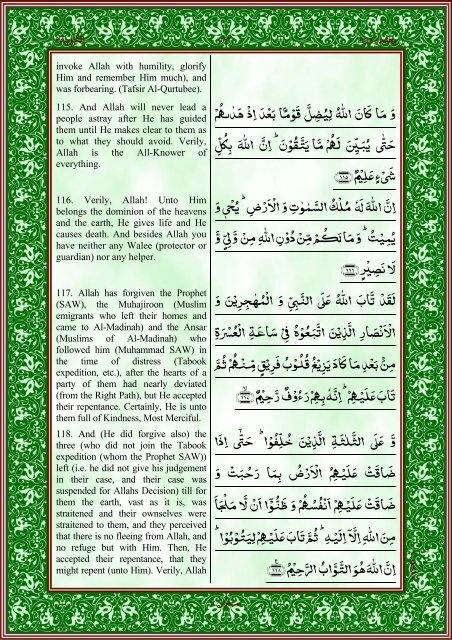 invoke Allah with humility, glorify
Him and remember Him much), and
was forbearing. (Tafsir Al-Qurtubee).
115. And Allah will never lead a
people astray after He has guided
them until He makes clear to them as
to what they should avoid. Verily,
Allah is the All-Knower of
everything.
116. Verily, Allah! Unto Him
belongs the dominion of the heavens
and the earth, He gives life and He
causes death. And besides Allah you
have neither any Walee (protector or
guardian) nor any helper.
117. Allah has forgiven the Prophet
(SAW), the Muhajiroon (Muslim
emigrants who left their homes and
came to Al-Madinah) and the Ansar
(Muslims of Al-Madinah) who
followed him (Muhammad SAW) in
the time of distress (Tabook
expedition, etc.), after the hearts of a
party of them had nearly deviated
(from the Right Path), but He accepted
their repentance. Certainly, He is unto
them full of Kindness, Most Merciful.
118. And (He did forgive also) the
three (who did not join the Tabook
expedition (whom the Prophet SAW))
left (i.e. he did not give his judgement
in their case, and their case was
suspended for Allahs Decision) till for
them the earth, vast as it is, was
straitened and their ownselves were
straitened to them, and they perceived
that there is no fleeing from Allah, and
no refuge but with Him. Then, He
accepted their repentance, that they
might repent (unto Him). Verily, Allah
وَ مَا كَانَ اللّٰهُ لِيُضِلَّ قَوْمًۢا بَعْدَ اِذْ هَدٰىهُمْ
حَتّٰى يُبَيِّنَ لَهُمْ مَّا يَتَّقُوْنَ ؕ اِنَّ اللّٰهَ بِكُلِّ
شَيْءٍ عَلِيْمٌ ﴿۱۱۵﴾
اِنَّ اللّٰهَ لَهٗ مُلْكُ السَّمٰوٰتِ وَ الْاَرْضِ ؕ يُحْيٖ وَ
يُمِيْتُ ؕ وَ مَا لَكُمْ مِّنْ دُوْنِ اللّٰهِ مِنْ وَّلِيٍّ وَّ
لَا نَصِيْرٍ ﴿۱۱۶﴾
لَقَدْ تَّابَ اللّٰهُ عَلَى النَّبِيِّ وَ الْمُهٰجِرِيْنَ وَ
الْاَنْصَارِ الَّذِيْنَ اتَّبَعُوْهُ فِيْ سَاعَةِ الْعُسْرَةِ
مِنْۢ بَعْدِ مَا كَادَ يَزِيْغُ قُلُوْبُ فَرِيْقٍ مِّنْهُمْ ثُمَّ
تَابَ عَلَيْهِمْ ؕ اِنَّهٗ بِهِمْ رَءُوْفٌ رَّحِيْمٌ ﴿۱۱۷﴾
وَّ عَلَى الثَّلٰثَةِ الَّذِيْنَ خُلِّفُوْا ؕ حَتّٰى اِذَا
ضَاقَتْ عَلَيْهِمُ الْاَرْضُ بِمَا رَحُبَتْ وَ
ضَاقَتْ عَلَيْهِمْ اَنْفُسُهُمْ وَ ظَنُّوْۤا اَنْ لَّا مَلْجَاَ
مِنَ اللّٰهِ اِلَّاۤ اِلَيْهِ ؕ ثُمَّ تَابَ عَلَيْهِمْ لِيَتُوْبُوْا ؕ
اِنَّ اللّٰهَ هُوَ التَّوَّابُ الرَّحِيْمُ ﴿۱۱۸﴾